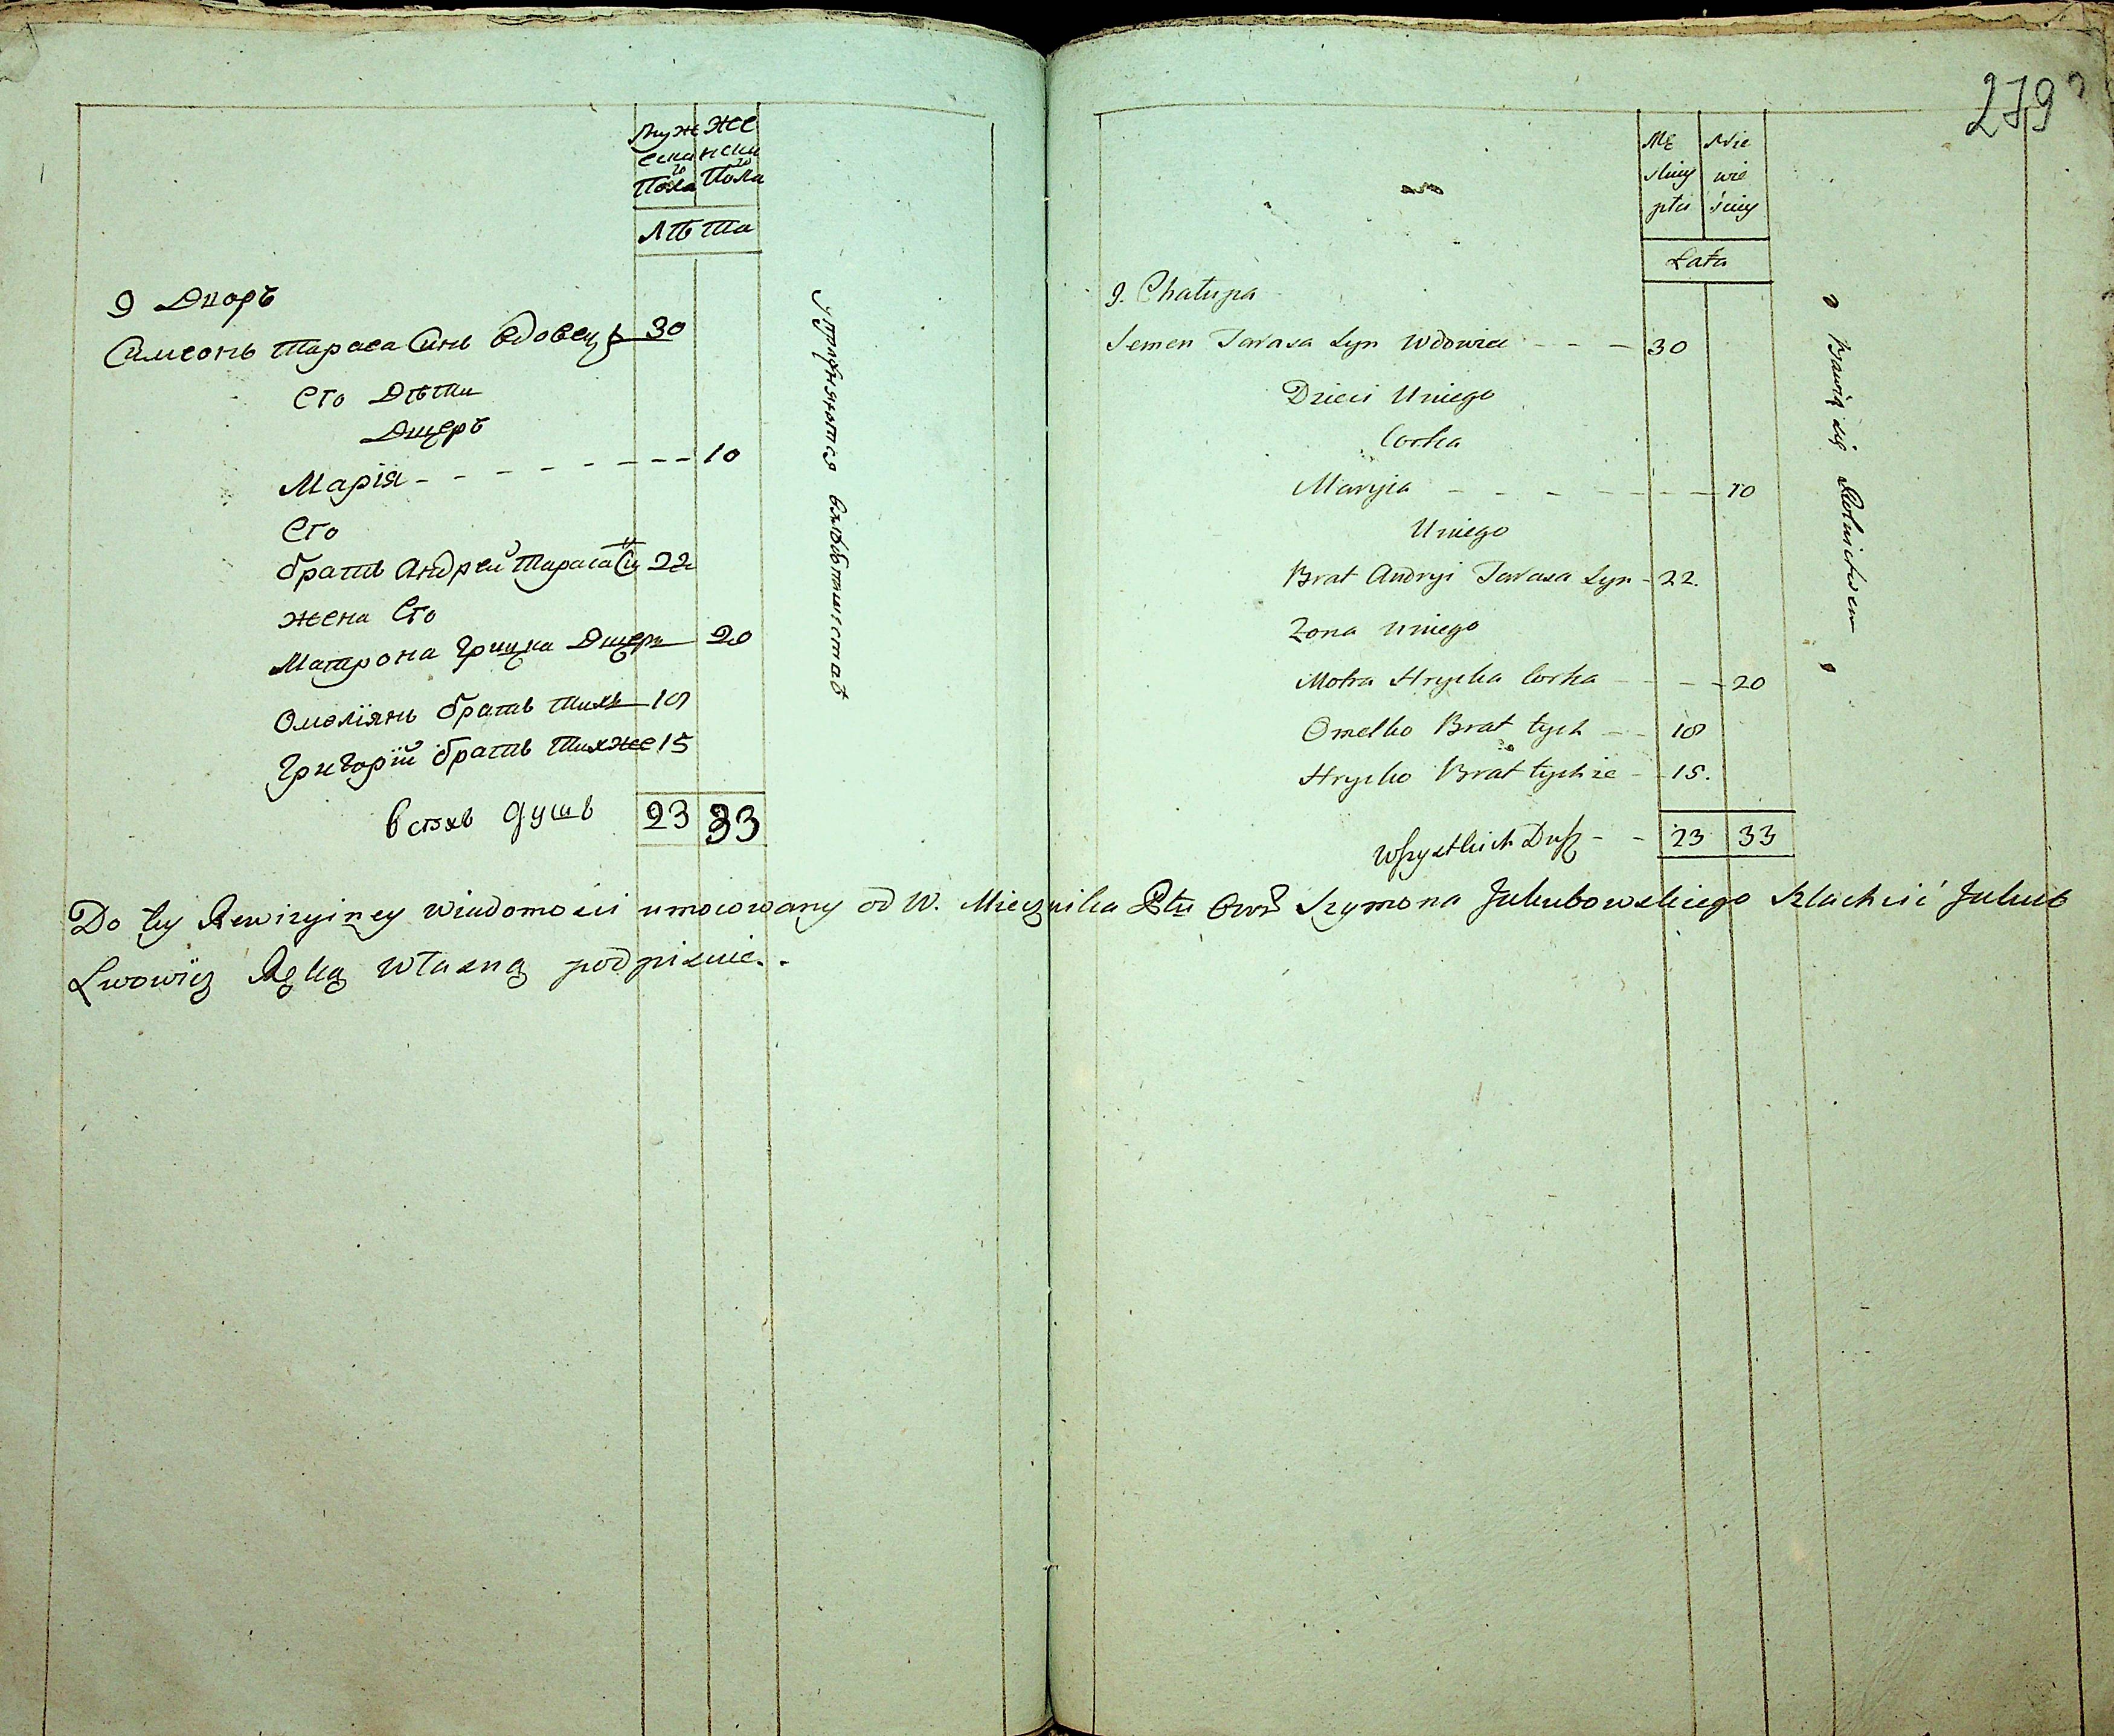 Муж Же
еска нски
го го
Пола Пола
Лѣта
9 Дворъ
Симеонъ Тараса Синъ вдовец 30
Его Дѣти
Дщерь
Марія - - - - - - - - 10
Его
братъ Андрей Тараса Си 22
жена Его
Матрона Грицка Дщерь 20
Омелїянъ братъ тихъ 18
Григорїй братъ тихже 15
всѣхъ душъ 23 33
упражняются
279
Mę Nie
skiey wie
płci ściey
Lata
9. Chałupa
Semen Tarasa Syn Wdowiec - - - 30
Dzieci Uniego
Corka
Maryia - - - - - - - 10
Uniego
Brat Andryi Tarasa Syn - 22.
Zona Uniego
Motra Hrycka Corka - - - 20
Omelko Brat tych - - 18
Hrycko Brat tychże - 15.
Wszystkich Dusz - - 23 33
Bawią się Rolnictwem
Do tey Rewizyiney wiadomości umocowany od W. Miecznika Ptu Owr Szymona Jakubowskiego Szlachcic Jakub
Lwowicz Ręką własną podpisuie.